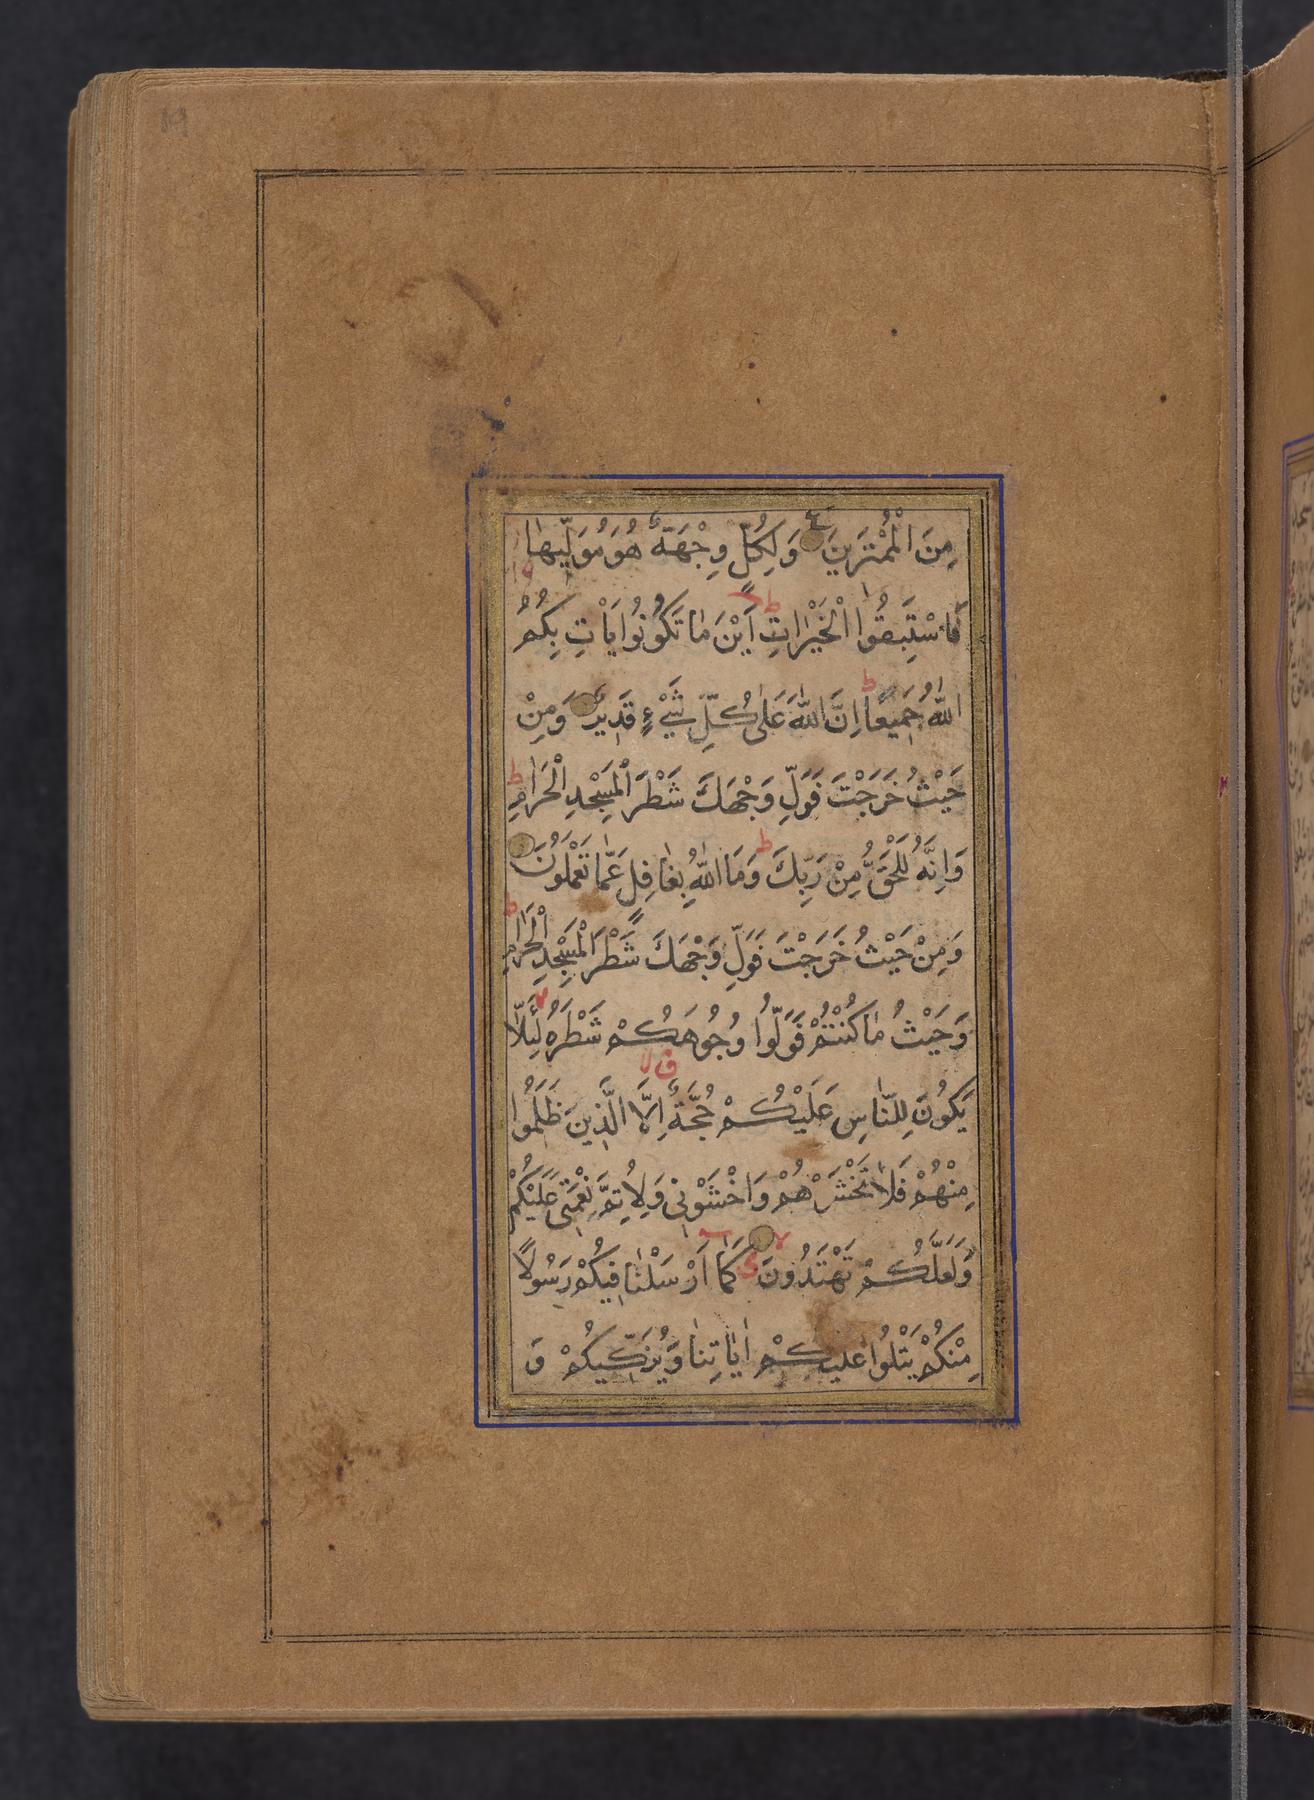 مِنَ الْمُمْتَرِينَ وَلِكُلٍّ وِجْهَةٌ هُوَ مُوَلِّيهٰا
فَاسْتَبِقُوا الْخَيْرٰاتِ اَيْنَ مٰا تَكُونُوا يَأْتِ بِكُمُ
اللّٰهُ جَمِيعًا اِنَّ اللّٰهَ عَلٰى كُلِّ شَيْءٍ قَدِيرٌ وَمِنْ
حَيْثُ خَرَجْتَ فَوَلِّ وَجْهَكَ شَطْرَ الْمَسْجِدِ الْحَرٰامِ
وَاِنَّهُ لَلْحَقُّ مِنْ رَبِّكَ وَمَا اللّٰهُ بِغٰافِلٍ عَمّٰا تَعْمَلُونَ
وَمِنْ حَيْثُ خَرَجْتَ فَوَلِّ وَجْهَكَ شَطْرَ الْمَسْجِدِ الْحَرٰامِ
وَحَيْثُ مٰا كُنْتُمْ فَوَلُّوا وُجُوهَكُمْ شَطْرَهُ لِئَلّٰا
يَكُونَ لِلنّٰاسِ عَلَيْكُمْ حُجَّةٌ اِلَّا الَّذِينَ ظَلَمُوا
مِنْهُمْ فَلٰا تَخْشَوْهُمْ وَاخْشَوْنِي وَلِاُتِمَّ نِعْمَتِي عَلَيْكُمْ
وَلَعَلَّكُمْ تَهْتَدُونَ كَمٰا اَرْسَلْنٰا فِيكُمْ رَسُولًا
مِنْكُمْ يَتْلُوا عليكُمْ اٰيٰاتِنٰا وَيُزَكِّيكُمْ وَ